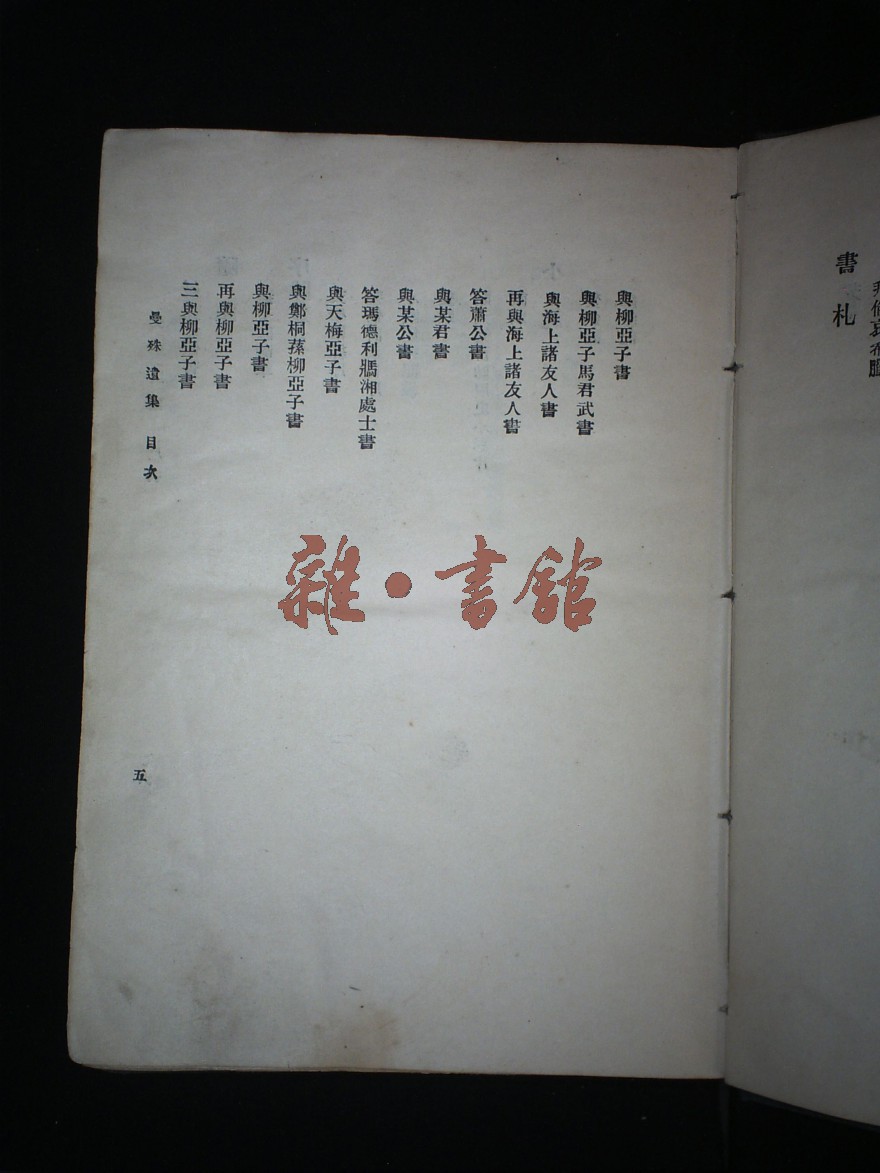 書札
與柳亞子書
與柳亞子馬君武書
與海上諸友人書
再與海上諸友人書
答蕭公書
與某君書
與某公書
答瑪德利鴈湘處士書
與天梅亞子書
與鄭桐蓀柳亞子書
與柳亞子書
再與柳亞子書
三與柳亞子書
曼殊遺集 目次
五
雜·書館